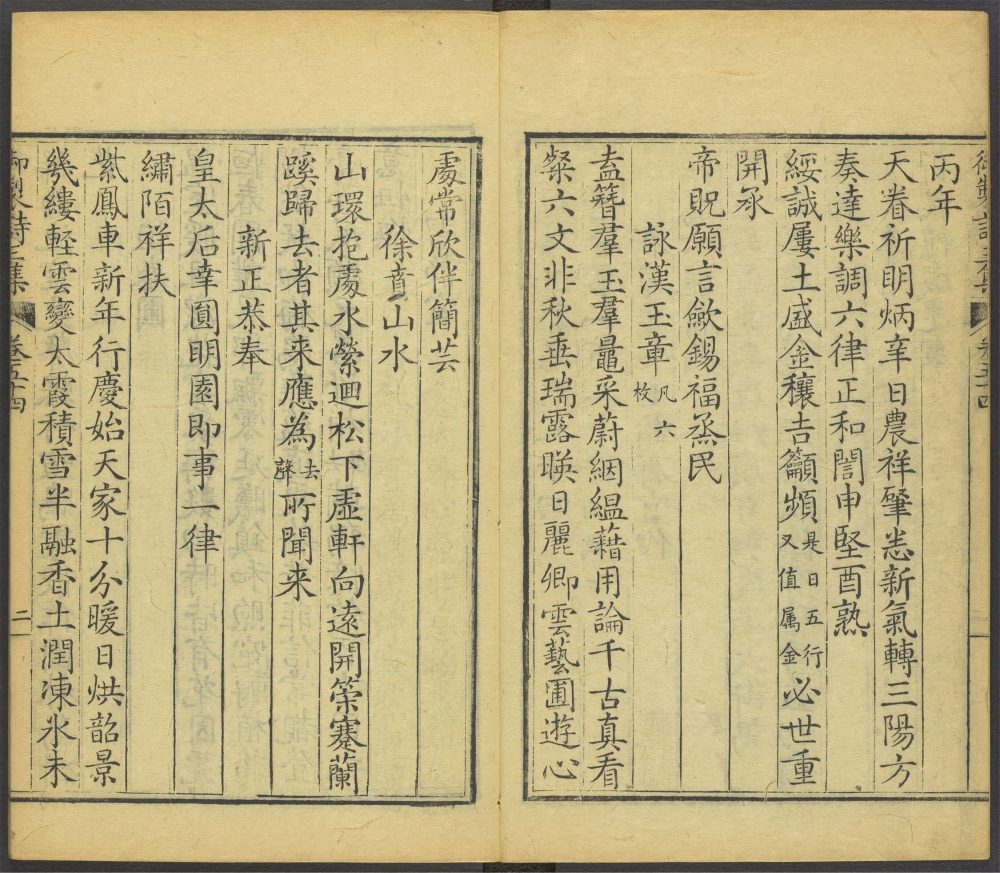 丙年
天眷祈明炳辛日農祥肇恙新氣轉三陽方
奏達樂調六律正和誾申堅酉熟
綏誠屢土盛金穰吉籲頻是日五行又值属金必世重
開承
帝貺願言歛錫福烝民
詠漢玉章凡六枚
盍簪羣玉羣鼂采蔚絪縕藉用論千古真看
粲六文非秋垂瑞露暎日麗卿雲藝圃遊心
處常欣伴簡芸
徐賁山水
山環抱處水縈迴松下虛軒向遠開策蹇蘭
蹊歸去者其来應為去聲所聞来
新正恭奉
皇太后幸圓明園即事一律
繡陌祥扶
紫鳳車新年行慶始天家十分暖日烘韶景
幾縷輕雲變太霞積雪半融香土潤凍氷未
御製詩二集 卷五十四 二